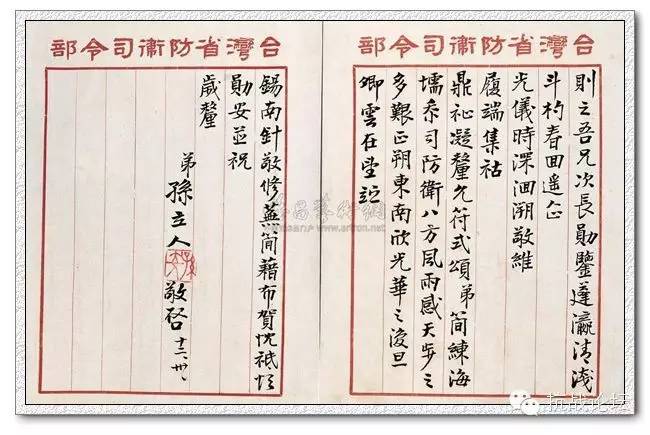 台灣省防衛司令部
則之吾兄次長勛鑒蓬瀛清淺
斗杓春回遙企
光儀時深洄溯敬維
履端集祜
鼎祉凝釐允符式頌弟簡練海
壖忝司防衛八方風雨感天步之
多艱正朔東南欣光華之復旦
卿雲在望竚
台灣省防衛司令部
錫南針敬修蕪簡藉布賀忱祇頌
勛安並祝
歲釐
弟孫立人敬啓十二、卅、
抗战论坛